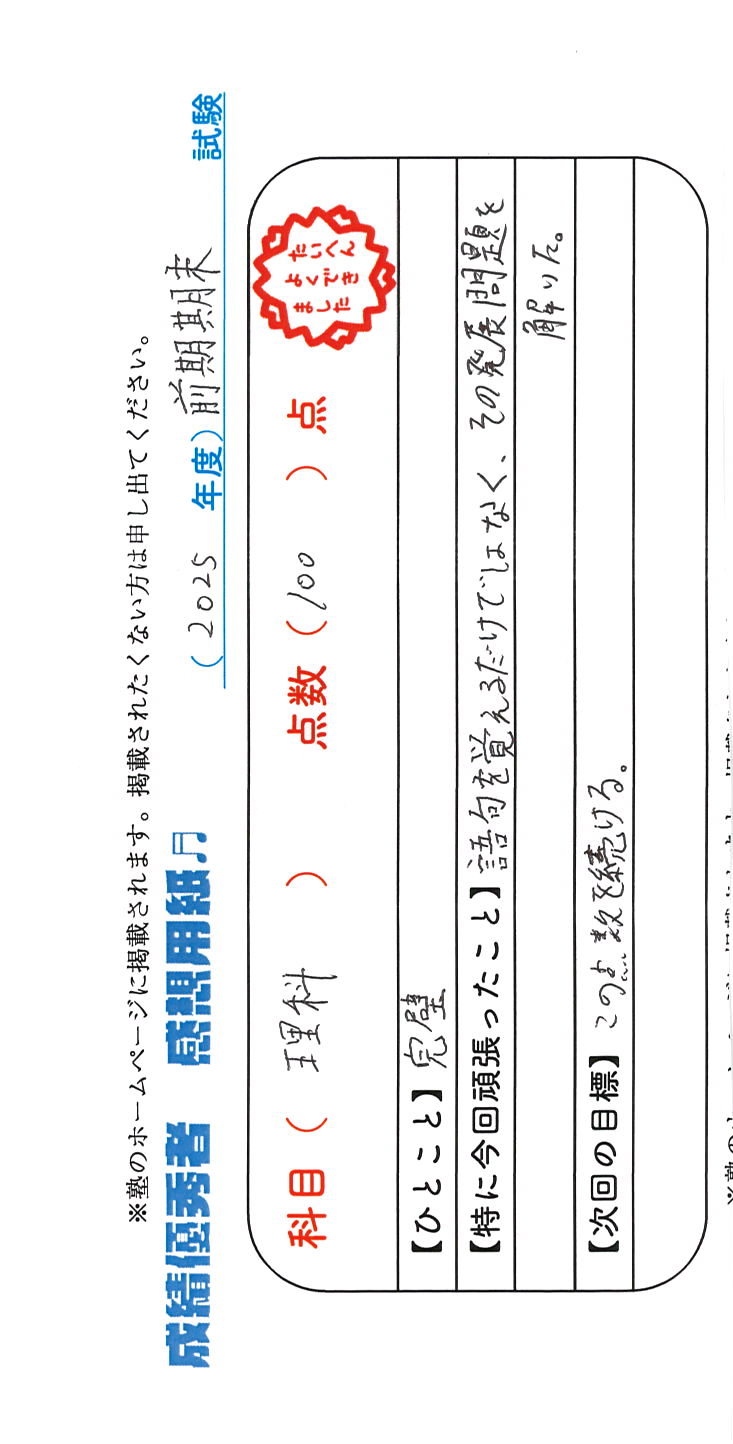 ※塾のホームページに掲載されます。掲載されたくない方は申し出てください。
成績優秀者 感想用紙♫ (2025 年度)前期期末 試験
科目(理科) 点数(100)点
たいへん
よくでき
ました
【ひとこと】完璧
【特に今回頑張ったこと】語句を覚えるだけではなく、その発展問題を
解いた。
【次回の目標】この点数を続ける。